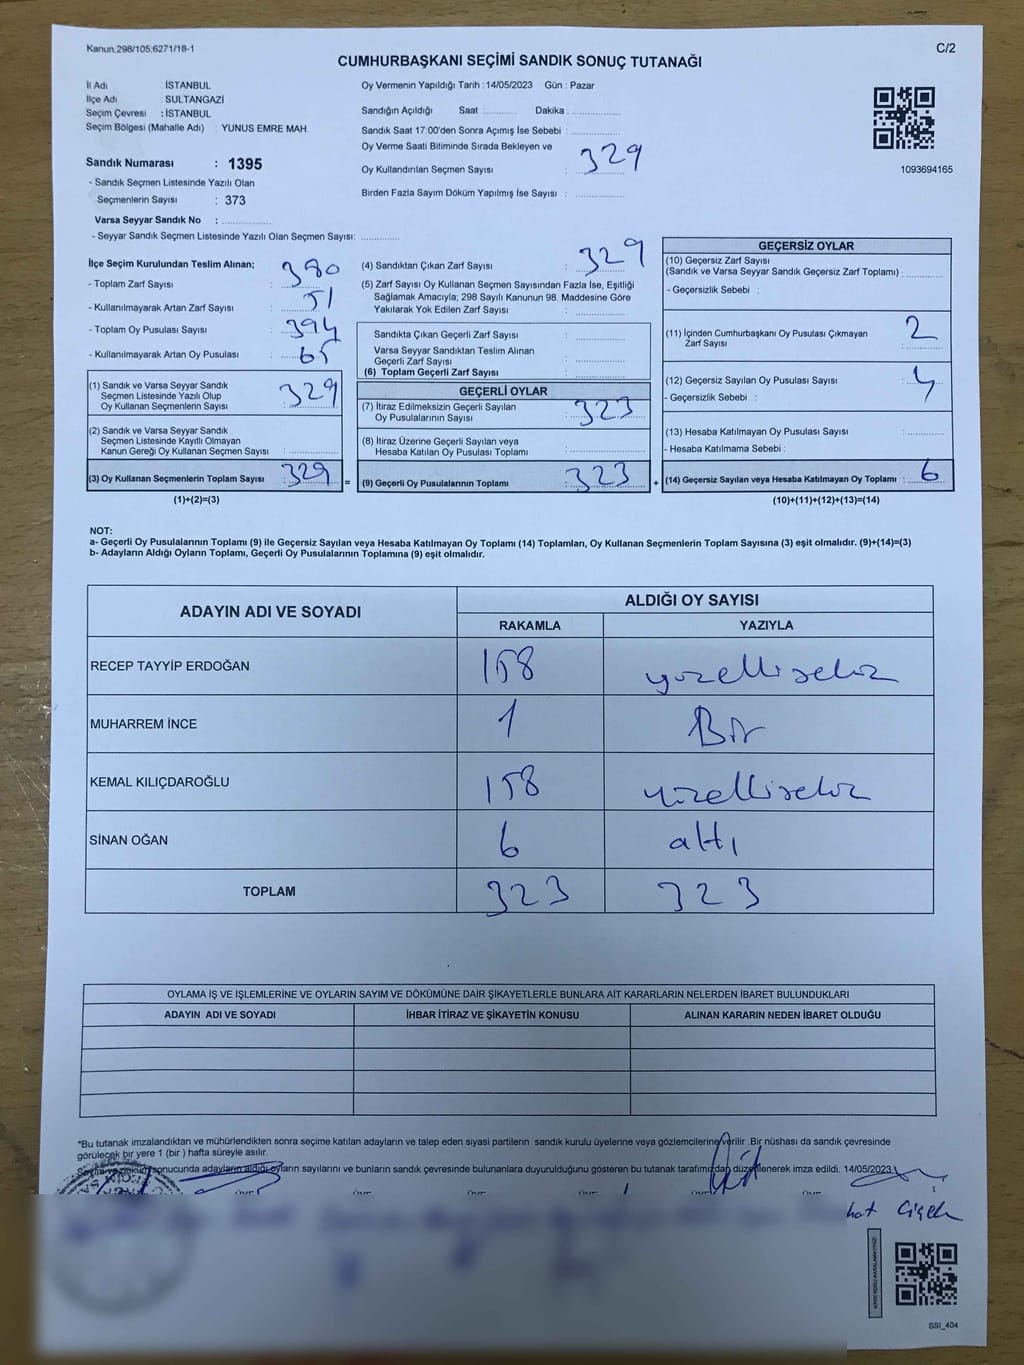 Kanun:298/105;6271/18-1
C/2
CUMHURBAŞKANI SEÇİMİ SANDIK SONUÇ TUTANAĞI
İl Adı : İSTANBUL
İlçe Adı : SULTANGAZİ
Seçim Çevresi : İSTANBUL
Seçim Bölgesi (Mahalle Adı) : YUNUS EMRE MAH.
Sandık Numarası : 1395
- Sandık Seçmen Listesinde Yazılı Olan
Seçmenlerin Sayısı : 373
Varsa Seyyar Sandık No :
- Seyyar Sandık Seçmen Listesinde Yazılı Olan Seçmen Sayısı:
Oy Vermenin Yapıldığı Tarih :14/05/2023 Gün : Pazar
Sandığın Açıldığı Saat : Dakika :
Sandık Saat 17:00'den Sonra Açımış İse Sebebi :
Oy Verme Saati Bitiminde Sırada Bekleyen ve
Oy Kullandırılan Seçmen Sayısı : 329
Birden Fazla Sayım Döküm Yapılmış İse Sayısı :
1093694165
İlçe Seçim Kurulundan Teslim Alınan;
- Toplam Zarf Sayısı : 380
- Kullanılmayarak Artan Zarf Sayısı : 51
- Toplam Oy Pusulası Sayısı : 394
- Kullanılmayarak Artan Oy Pusulası : 65
(1) Sandık ve Varsa Seyyar Sandık
Seçmen Listesinde Yazılı Olup
Oy Kullanan Seçmenlerin Sayısı : 329
(2) Sandık ve Varsa Seyyar Sandık
Seçmen Listesinde Kayıtlı Olmayan
Kanun Gereği Oy Kullanan Seçmen Sayısı :
(3) Oy Kullanan Seçmenlerin Toplam Sayısı : 329
(1)+(2)=(3)
(4) Sandıktan Çıkan Zarf Sayısı : 329
(5) Zarf Sayısı Oy Kullanan Seçmen Sayısından Fazla İse, Eşitliği
Sağlamak Amacıyla; 298 Sayılı Kanunun 98. Maddesine Göre
Yakılarak Yok Edilen Zarf Sayısı :
Sandıkta Çıkan Geçerli Zarf Sayısı :
Varsa Seyyar Sandıktan Teslim Alınan
Geçerli Zarf Sayısı :
(6) Toplam Geçerli Zarf Sayısı :
GEÇERLİ OYLAR
(7) İtiraz Edilmeksizin Geçerli Sayılan
Oy Pusulalarının Sayısı : 323
(8) İtiraz Üzerine Geçerli Sayılan veya
Hesaba Katılan Oy Pusulası Toplamı :
= (9) Geçerli Oy Pusulalarının Toplamı : 323 +
GEÇERSİZ OYLAR
(10) Geçersiz Zarf Sayısı
(Sandık ve Varsa Seyyar Sandık Geçersiz Zarf Toplamı) :
- Geçersizlik Sebebi :
(11) İçinden Cumhurbaşkanı Oy Pusulası Çıkmayan
Zarf Sayısı : 2
(12) Geçersiz Sayılan Oy Pusulası Sayısı : 4
- Geçersizlik Sebebi :
(13) Hesaba Katılmayan Oy Pusulası Sayısı :
- Hesaba Katılmama Sebebi :
(14) Geçersiz Sayılan veya Hesaba Katılmayan Oy Toplamı : 6
(10)+(11)+(12)+(13)=(14)
NOT:
a- Geçerli Oy Pusulalarının Toplamı (9) ile Geçersiz Sayılan veya Hesaba Katılmayan Oy Toplamı (14) Toplamları, Oy Kullanan Seçmenlerin Toplam Sayısına (3) eşit olmalıdır. (9)+(14)=(3)
b- Adayların Aldığı Oyların Toplamı, Geçerli Oy Pusulalarının Toplamına (9) eşit olmalıdır.
ADAYIN ADI VE SOYADI ALDIĞI OY SAYISI
RAKAMLA YAZIYLA
RECEP TAYYİP ERDOĞAN 158 yüzellisekiz
MUHARREM İNCE 1 Bir
KEMAL KILIÇDAROĞLU 158 yüzellisekiz
SİNAN OĞAN 6 altı
TOPLAM 323 323
OYLAMA İŞ VE İŞLEMLERİNE VE OYLARIN SAYIM VE DÖKÜMÜNE DAİR ŞİKAYETLERLE BUNLARA AİT KARARLARIN NELERDEN İBARET BULUNDUKLARI
ADAYIN ADI VE SOYADI İHBAR İTİRAZ VE ŞİKAYETİN KONUSU ALINAN KARARIN NEDEN İBARET OLDUĞU
*Bu tutanak imzalandıktan ve mühürlendikten sonra seçime katılan adayların ve talep eden siyasi partilerin sandık kurulu üyelerine veya gözlemcilerine verilir .Bir nüshası da sandık çevresinde
görülecek bir yere 1 (bir ) hafta süreyle asılır.
Sayım ve döküm sonucunda adayların aldığı oyların sayılarını ve bunların sandık çevresinde bulunanlara duyurulduğunu gösteren bu tutanak tarafımızdan düzenlenerek imza edildi. 14/05/2023
hat Çiçek
SSİ_404